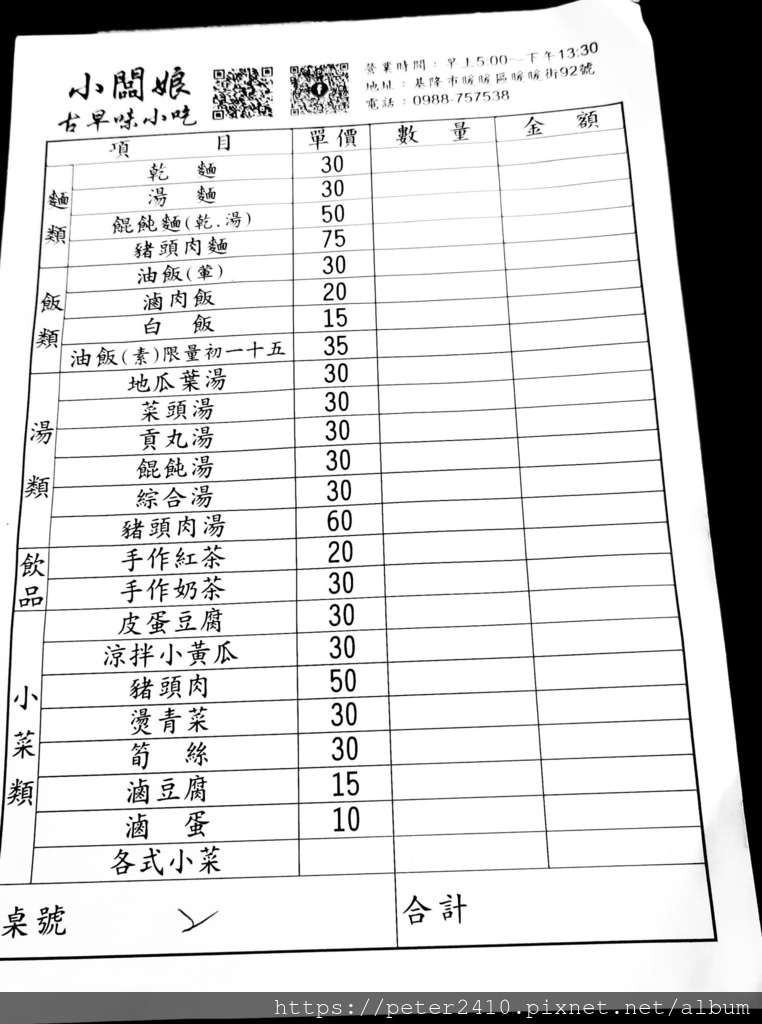 小闆娘
古早味小吃
營業時間：早上5:00~下午13:30
地址：基隆市暖暖區暖暖街92號
電話：0988-757538
項目 單價 數量 金額
麵類
乾麵 30
湯麵 30
餛飩麵(乾.湯) 50
豬頭肉麵 75
飯類
油飯(葷) 30
滷肉飯 20
白飯 15
油飯(素)限量初一十五 35
湯類
地瓜葉湯 30
菜頭湯 30
貢丸湯 30
餛飩湯 30
綜合湯 30
豬頭肉湯 60
飲品
手作紅茶 20
手作奶茶 30
小菜類
皮蛋豆腐 30
涼拌小黃瓜 30
豬頭肉 50
燙青菜 30
筍絲 30
滷豆腐 15
滷蛋 10
各式小菜
桌號 合計
https://peter2410.pixnet.net/album